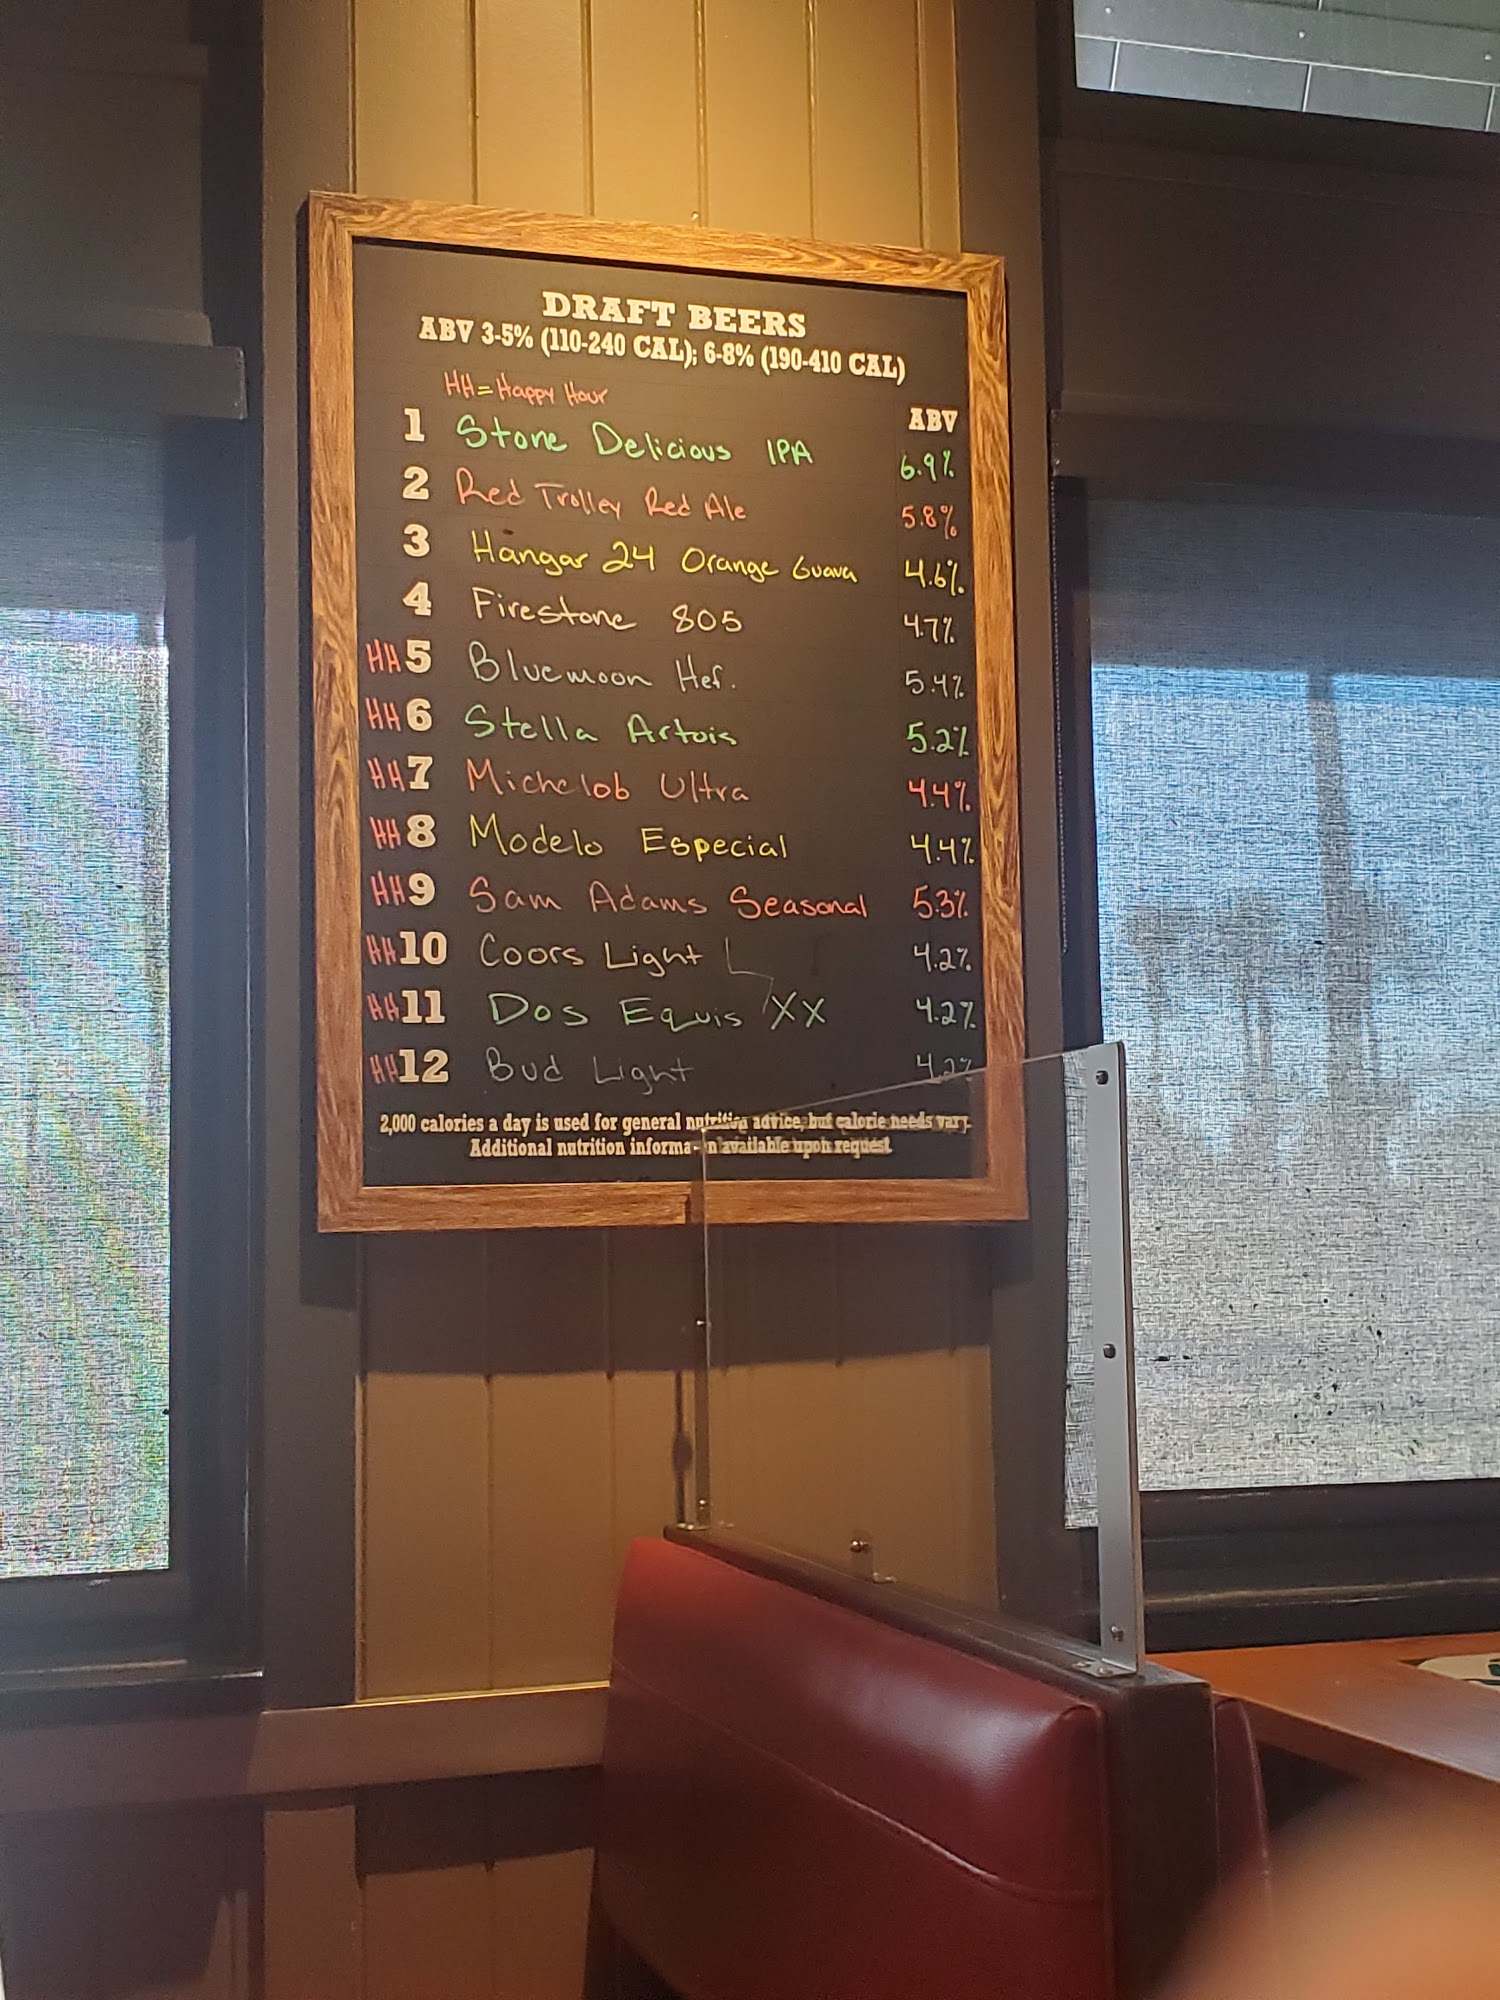 DRAFT BEERS
ABV 3-5% (110-240 CAL); 6-8% (190-410 CAL)
HH = Happy Hour
ABV
1 Stone Delicious IPA 6.9%
2 Red Trolley Red Ale 5.8%
3 Hangar 24 Orange Guava 4.6%
4 Firestone 805 4.7%
HH 5 Bluemoon Hef. 5.4%
HH 6 Stella Artois 5.2%
HH 7 Michelob Ultra 4.4%
HH 8 Modelo Especial 4.4%
HH 9 Sam Adams Seasonal 5.3%
HH 10 Coors Light 4.2%
HH 11 Dos Equis XX 4.2%
HH 12 Bud Light 4.2%
2,000 calories a day is used for general nutritive advice, but calorie needs vary.
Additional nutrition information available upon request